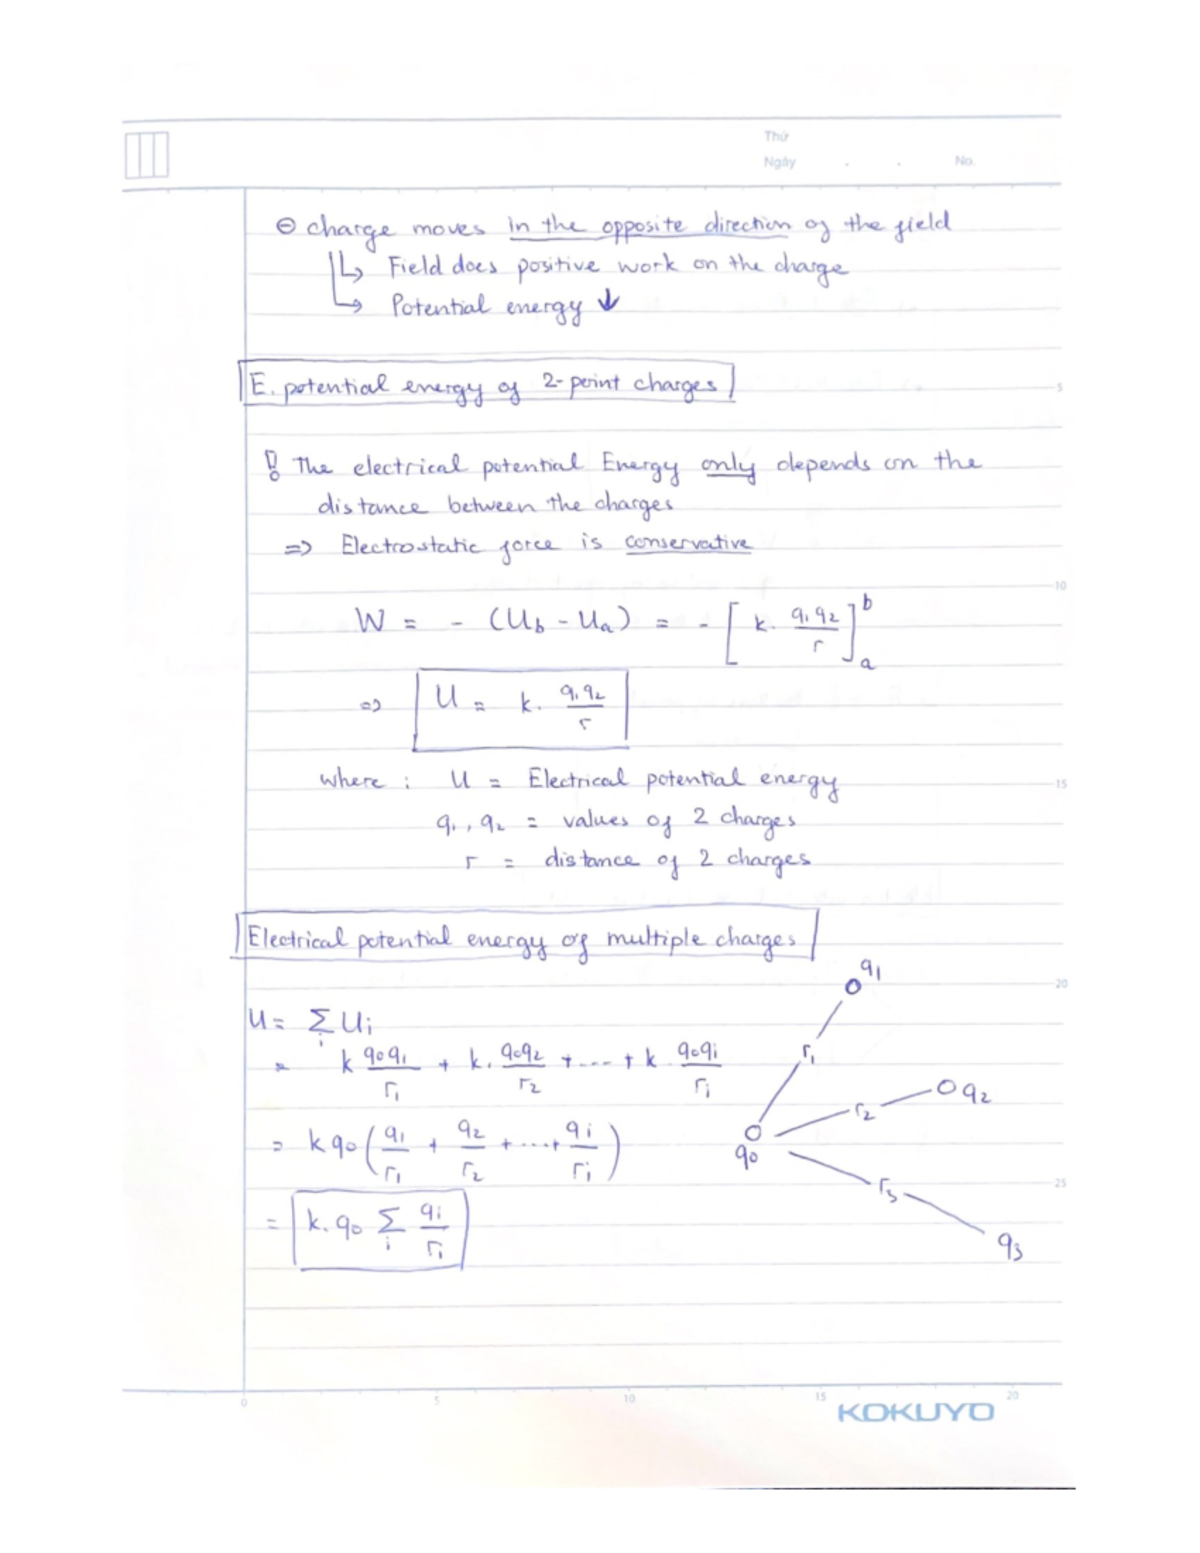 Thứ
Ngày . . No.
⊖ charge moves in the opposite direction of the field
↳ Field does positive work on the charge
↳ Potential energy ↓
E. potential energy of 2-point charges
5
! The electrical potential Energy only depends on the
distance between the charges
=> Electrostatic force is conservative
10
W = - (Ub - Ua) = - [k. q1q2/r]ᵇₐ
=> U = k. q1q2/r
where : U = Electrical potential energy
15
q1, q2 = values of 2 charges
r = distance of 2 charges
Electrical potential energy of multiple charges
q1
20
U = Σi Ui
= k q0q1/r1 + k. q0q2/r2 + .... + k q0qi/ri
r1
q2
r2
= k q0 (q1/r1 + q2/r2 + ....+ qi/ri)
q0
r3
25
= k. q0 Σi qi/ri
q3
0 5 10 15 20
KOKUYO